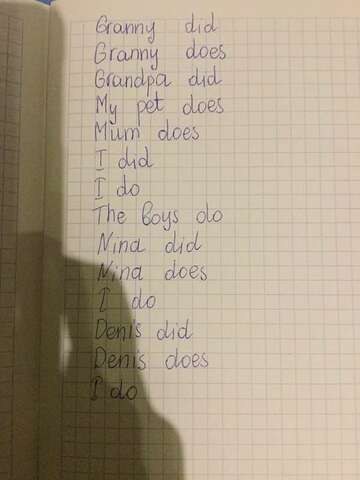 Granny did
Granny does
Grandpa did
My pet does
Mum does
I did
I do
The boys do
Nina did
Nina does
I do
Denis did
Denis does
I do